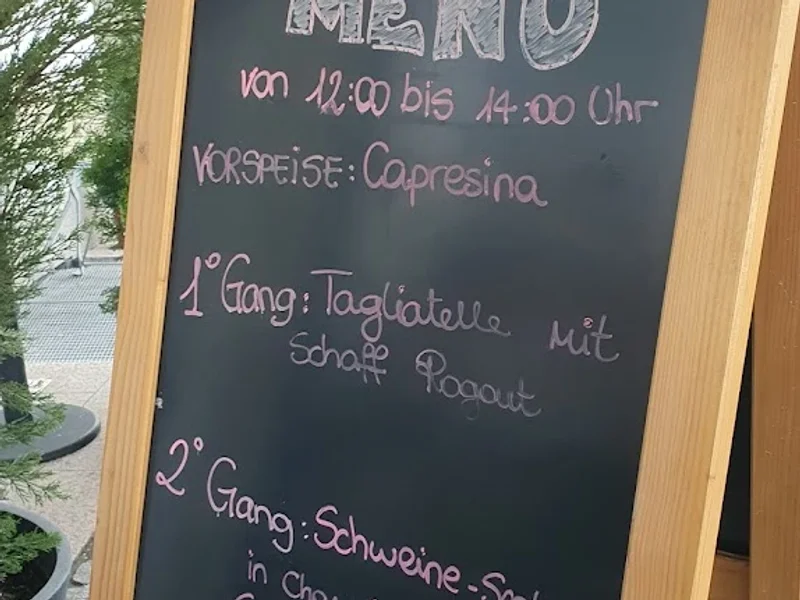 MENÜ
von 12:00 bis 14:00 Uhr
VORSPEISE: Capresina
1° Gang: Tagliatelle mit
Schaff Rogout
2° Gang: Schweine-
in